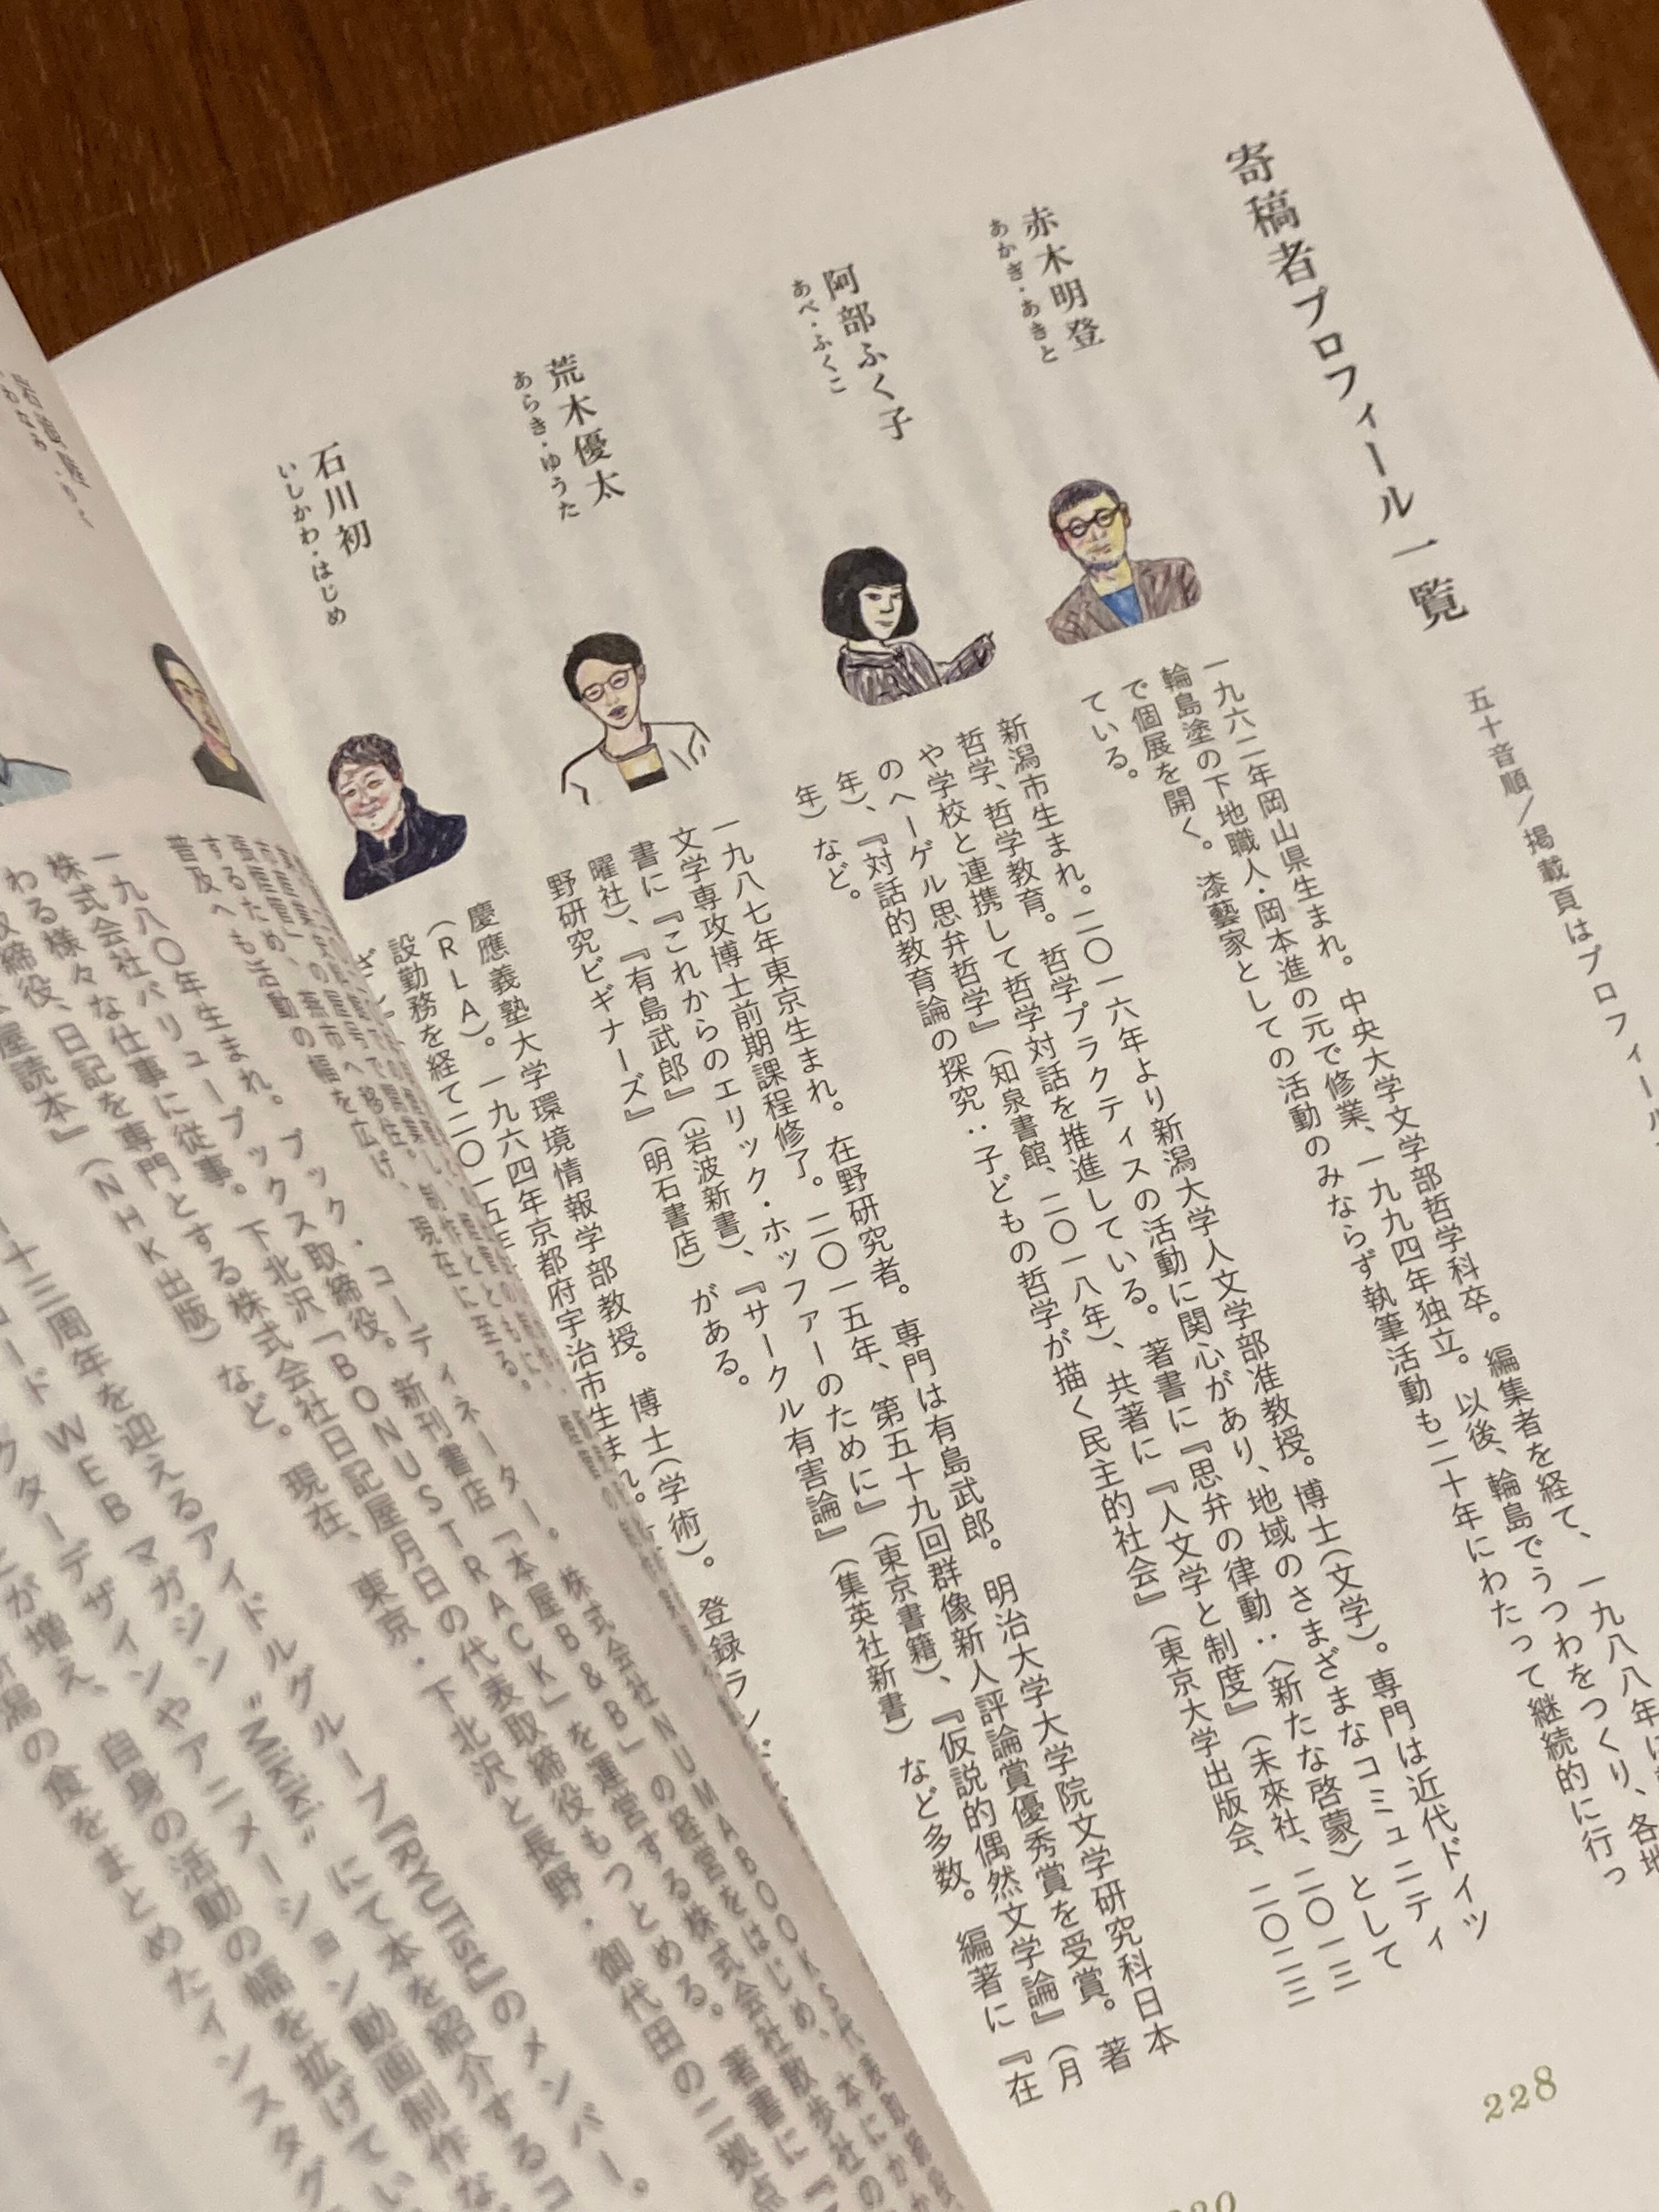 寄稿者プロフィール一覧
五十音順／掲載頁はプロフィール
赤木明登
あかぎ・あきと
一九六二年岡山県生まれ。中央大学文学部哲学科卒。編集者を経て、一九八八年に
輪島塗の下地職人・岡本進の元で修業、一九九四年独立。以後、輪島でうつわをつくり、各地
で個展を開く。漆藝家としての活動のみならず執筆活動も二十年にわたって継続的に行っ
ている。
阿部ふく子
あべ・ふくこ
新潟市生まれ。二〇一六年より新潟大学人文学部准教授。博士（文学）。専門は近代ドイツ
哲学、哲学教育。哲学プラクティスの活動に関心があり、地域のさまざまなコミュニティ
や学校と連携して哲学対話を推進している。著書に『思弁の律動：〈新たな啓蒙〉として
のヘーゲル思弁哲学』（知泉書館、二〇一八年）、共著に『人文学と制度』（未來社、二〇一三
年）、『対話的教育論の探究：子どもの哲学が描く民主的社会』（東京大学出版会、二〇二三
年）など。
荒木優太
あらき・ゆうた
一九八七年東京生まれ。在野研究者。専門は有島武郎。明治大学大学院文学研究科日本
文学専攻博士前期課程修了。二〇一五年、第五十九回群像新人評論賞優秀賞を受賞。著
書に『これからのエリック・ホッファーのために』（東京書籍）、『仮説的偶然文学論』（月
曜社）、『有島武郎』（岩波新書）、『サークル有害論』（集英社新書）など多数。編著に『在
野研究ビギナーズ』（明石書店）がある。
石川初
いしかわ・はじめ
慶應義塾大学環境情報学部教授。博士（学術）。登録ラン
（RLA）。一九六四年京都府宇治市生まれ。
設勤務を経て二〇一五年
228
するため、
普及へも活動の幅を広げ、現在に至る。
一九八〇年生まれ。ブック・コーディネーター。株式会社NUMABOOKS代表取締役、
株式会社バリューブックス取締役。新刊書店「本屋B&B」の経営をはじめ、本にかか
わる様々な仕事に従事。下北沢「BONUSTRACK」を運営する株式会社散歩社の
取締役、日記を専門とする株式会社日記屋月日の代表取締役もつとめる。著書に『
本屋読本』（NHK出版）など。現在、東京・下北沢と長野・御代田の二拠点
十三周年を迎えるアイドルグループ『RYUTist』のメンバー。
WEBマガジン
にて本を紹介するコ
クターデザインやアニメーション動画制作な
が増え、自身の活動の幅を拡げてい
潟の食をまとめたインスタグ